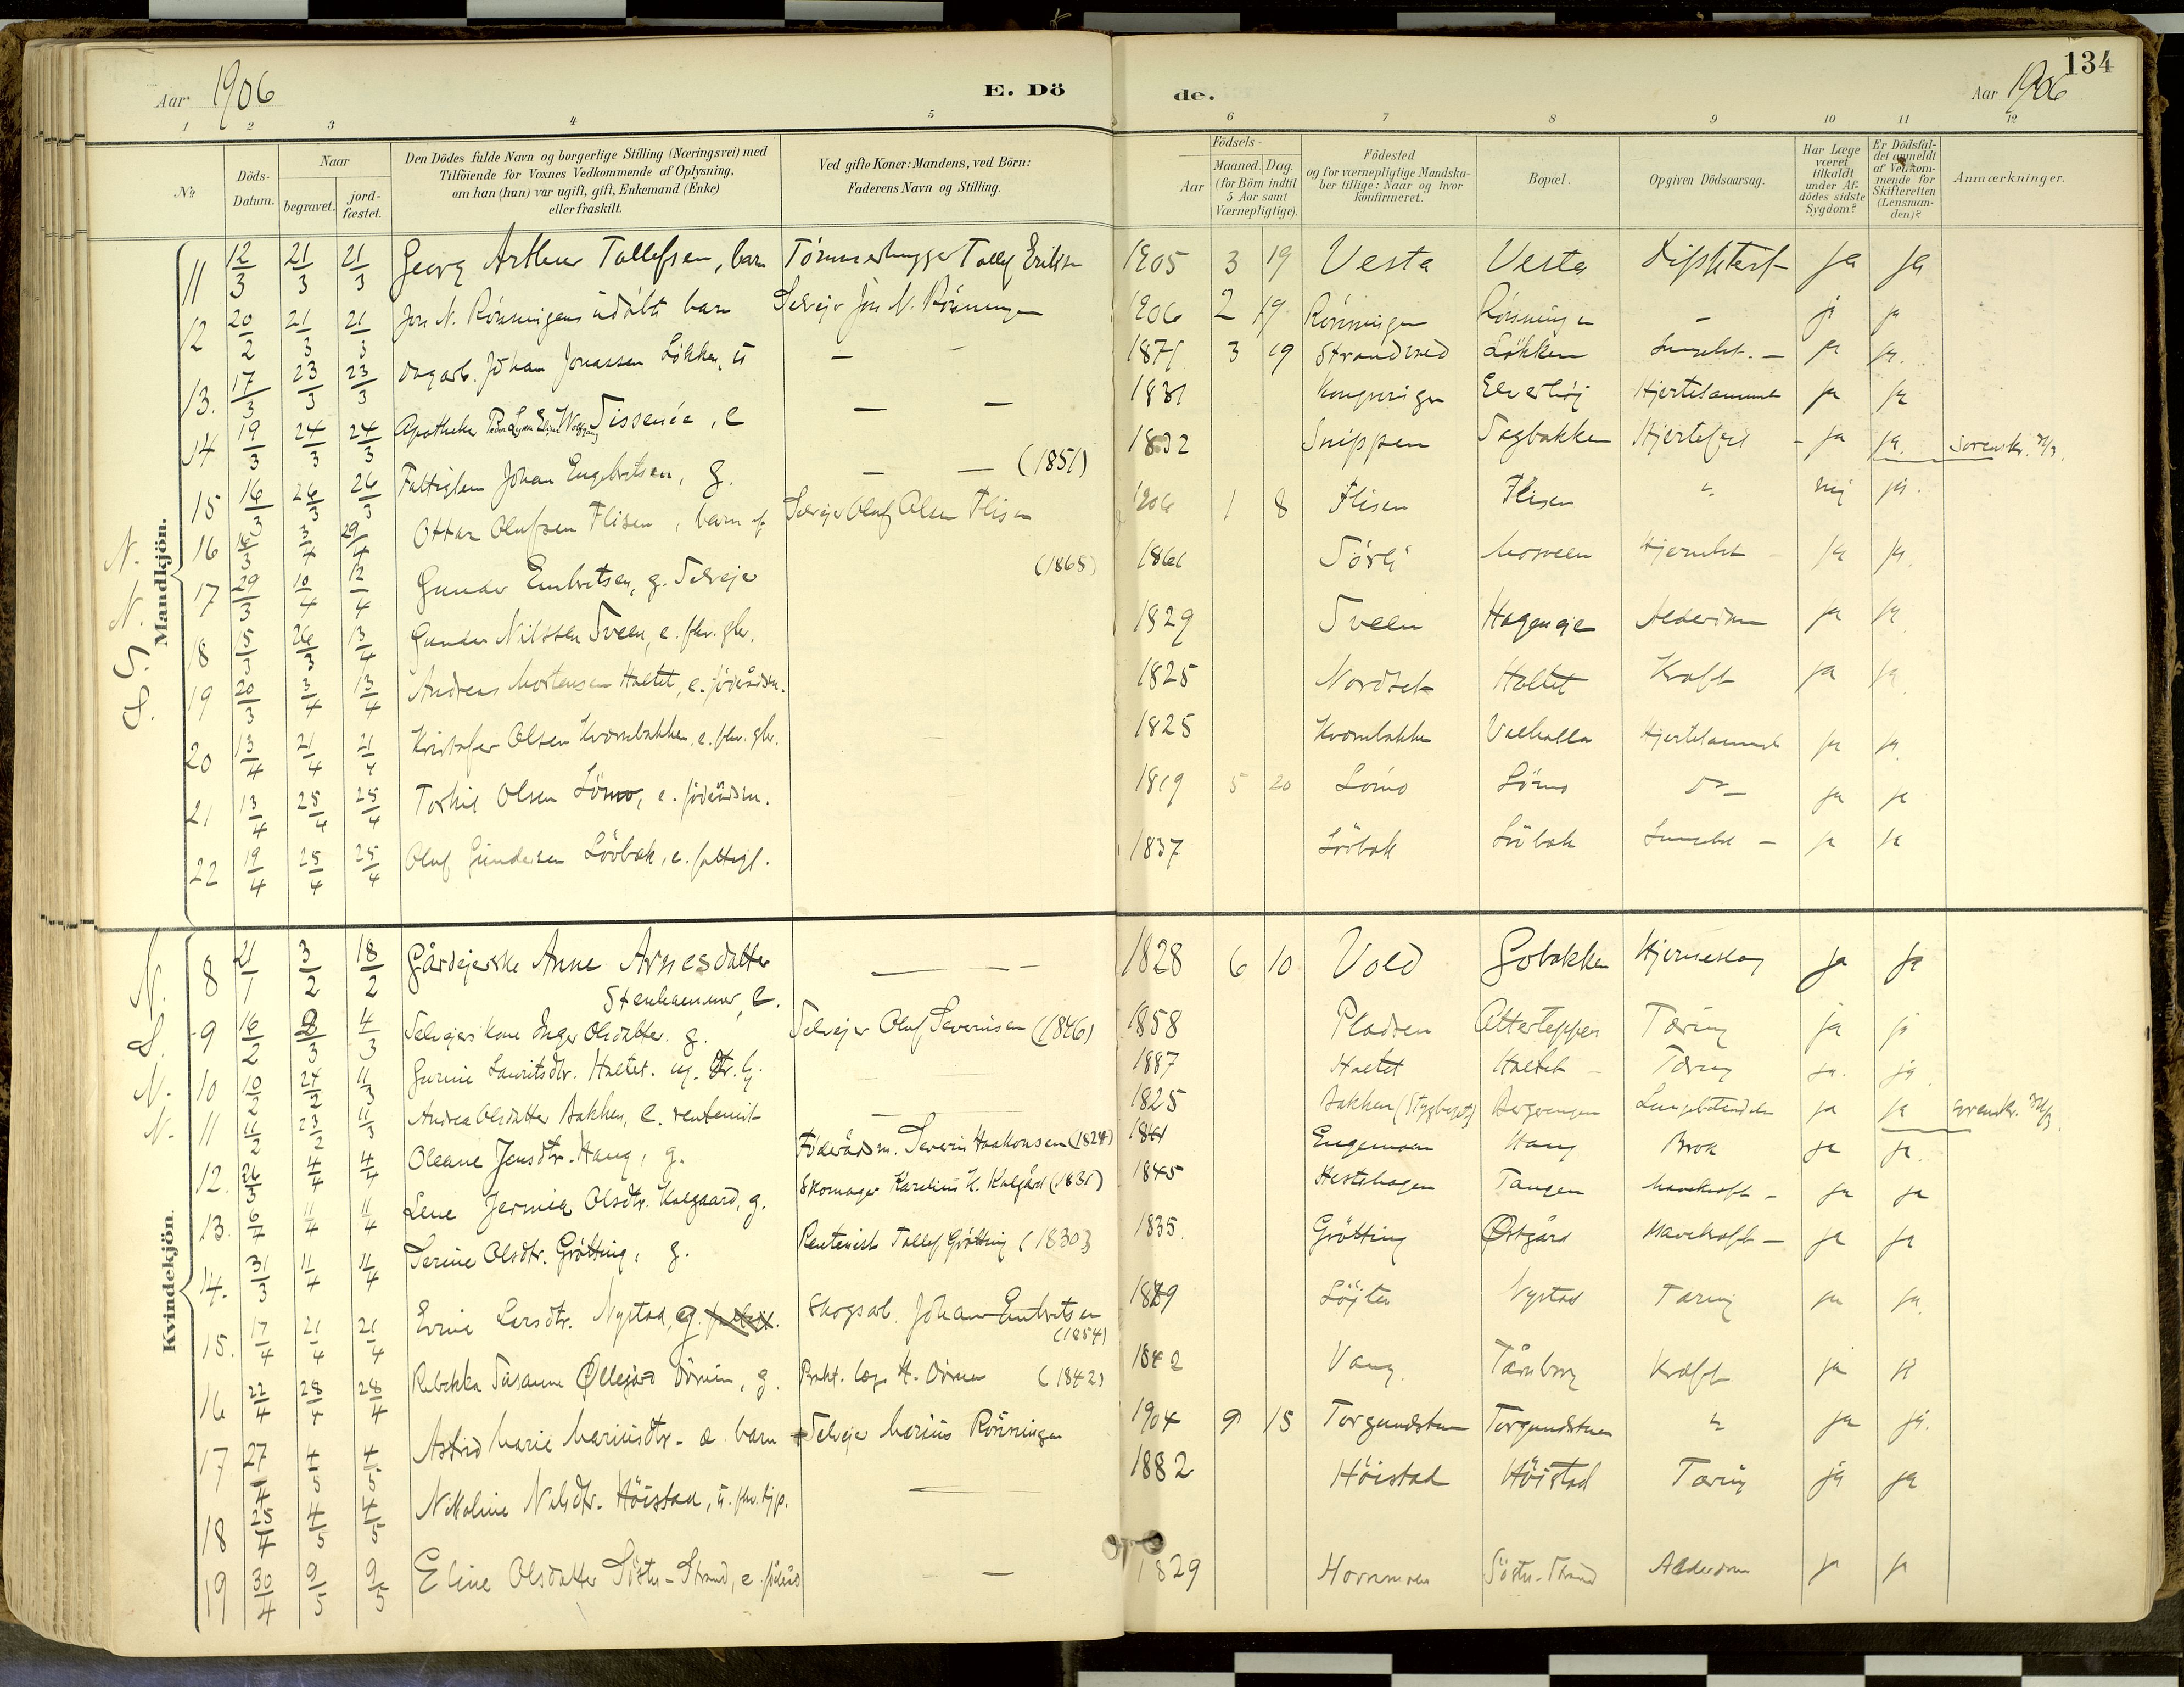 134
Aar 1906 E. Dö de. Aar 1906
1 2 3 4 5 6 7 8 9 10 11 12
No Döds-Datum. Naar begravet. jord-fæstet. Den Dödes fulde Navn og borgerlige Stilling (Næringsvei) med Tilföiende for Voxnes Vedkommende af Oplysning, om han (hun) var ugift, gift, Enkemand (Enke) eller fraskilt. Ved gifte Koner: Mandens, ved Börn: Faderens Navn og Stilling. Födsels- Aar Maaned. Dag. (for Börn indtil 5 Aar samt Værnepligtige). Födested og for værnepligtige Mandskaber tillige: Naar og hvor konfirmeret. Bopæl. Opgiven Dödsaarsag. Har Læge været tilkaldt under Afdödes sidste Sygdom? Er Dödsfaldet anmeldt af Vedkommende for Skifteretten (Lensmanden)? Anmærkninger.
Mandkjön.
11 12/3 21/3 21/3 Georg Arthur Tollefsen, barn Tömmerhugger Tollef Eriksen 1905 3 19 Vesta Vesta ja ja
12 20/2 21/3 21/3 Jon N. Rönningens udöbt barn Selvejer Jon N. Rönningen 1906 2 19 Rönningen Rönningen - ja ja
13. 17/3 23/3 23/3 Dagarb. Johan Jonassen Lökken, u — - 1871 3 19 Strandved Lökken ja ja.
14 19/3 24/3 24/3 Apotheker Tissenée, e — — 1831 Elverhöj Hjertelammelse ja ja
15 16/3 26/3 26/3 Fattiglem Johan Engebretsen, g. — — (1851) 1832 Snippen Sagbakken Hjertefejl - ja ja. sorenskr.
N. 16 16/3 3/4 29/4 Ottar Olufsen Flisen, barn af Selvejer Oluf Olsen Flisen 1906 1 8 Flisen Flisen " nej ja.
N. 17 29/3 10/4 12/4 Gunder Embretsen, g. Selvejer (1868) 1861 Mosveen ja ja.
S. 18 15/3 26/3 13/4 Gunder Nilssen Sveen, e. fhv. gbr. 1829 Sveen Hagenge Alderdom ja ja
S. 19 20/3 3/4 13/4 Andreas Mortensen Holtet, e. föderådsm. 1825 Nordset Holtet Kræft ja ja.
20 13/4 21/4 21/4 Kristofer Olsen Kvernbakken, e. fhv. gbr. 1825 Kvernbakken Valhalla Hjertelammelse ja ja.
21 13/4 25/4 25/4 Torkil Olsen Lömo, e. föderådsm. 1819 5 20 Lömo Lömo Do ja ja
22 19/4 25/4 25/4 Oluf Gundersen Lövbak, e. fattigl. 1837 Lövbak Lövbak - ja ja
Kvindekjön.
N. 8 21/1 3/2 18/2 Gårdejerske Anne Arnesdatter — - - 1828 6 10 Vold Gobakken Hjerneslag ja ja
Stenhammer, e.
S. 9 16/2 2/3 4/3 Selvejers kone Inger Olsdatter g. Selvejer Oluf Severinsen (1846) 1858 Pladsen Atterteppen Tæring ja ja
N. 10 10/2 24/2 11/3 Gurine Lauritsdtr. Holtet. ug. 1887 Holtet Holtet - Tæring ja. ja
N. 11 15/2 23/2 11/3 Andrea Olsdatter Bakken, e. rentenist — 1825 Bakken Bergvangen Lungebetændelse ja ja sorenskr.
12. 26/3 4/4 4/4 Oleane Jensdtr. Haug, g. Föderådsm. Severin Haakonsen (1824) 1841 Engemoen Haug Brok ja ja.
13. 6/4 11/4 11/4 Lene Jermia Olsdtr. Kalgaard, g. Skomager Karelius K. Kalgård (1831) 1845 Hestehagen Tangen Mavekræft - ja ja
14. 31/3 11/4 11/4 Serine Olsdtr. Grötting, g. Rentenist Tollef Grötting (1830) 1835. Grötting Östgård Mavekræft - ja ja
15. 17/4 21/4 21/4 Evine Larsdtr. Nystad, g. Skogsarb. Johan Embretsen 1889 Löjten Nystad Tæring ja ja
(1854)
16 22/4 28/4 28/4 Rebekka Susanne Öllegård Dörum, g. Prakt. læge H. Dörum (1842) 1842 Vang. Tårnborg Kræft ja ja
17 27/4 4/5 4/5 Astrid Marie Mariusdtr. - æ. barn Selvejer Marius Rönningen 1904 9 15 Torgundstuen Torgundstuen " ja ja.
18 25/4 4/5 4/5 Nikoline Nilsdtr. Höistad, u. fhv. tjp. — 1882 Höistad Höistad Tæring ja ja
19 30/4 9/5 9/5 Eline Olsdatter Söstu-Strand, e. föderåd — 1829 Hornmoen Söstu-Strand Alderdom ja ja